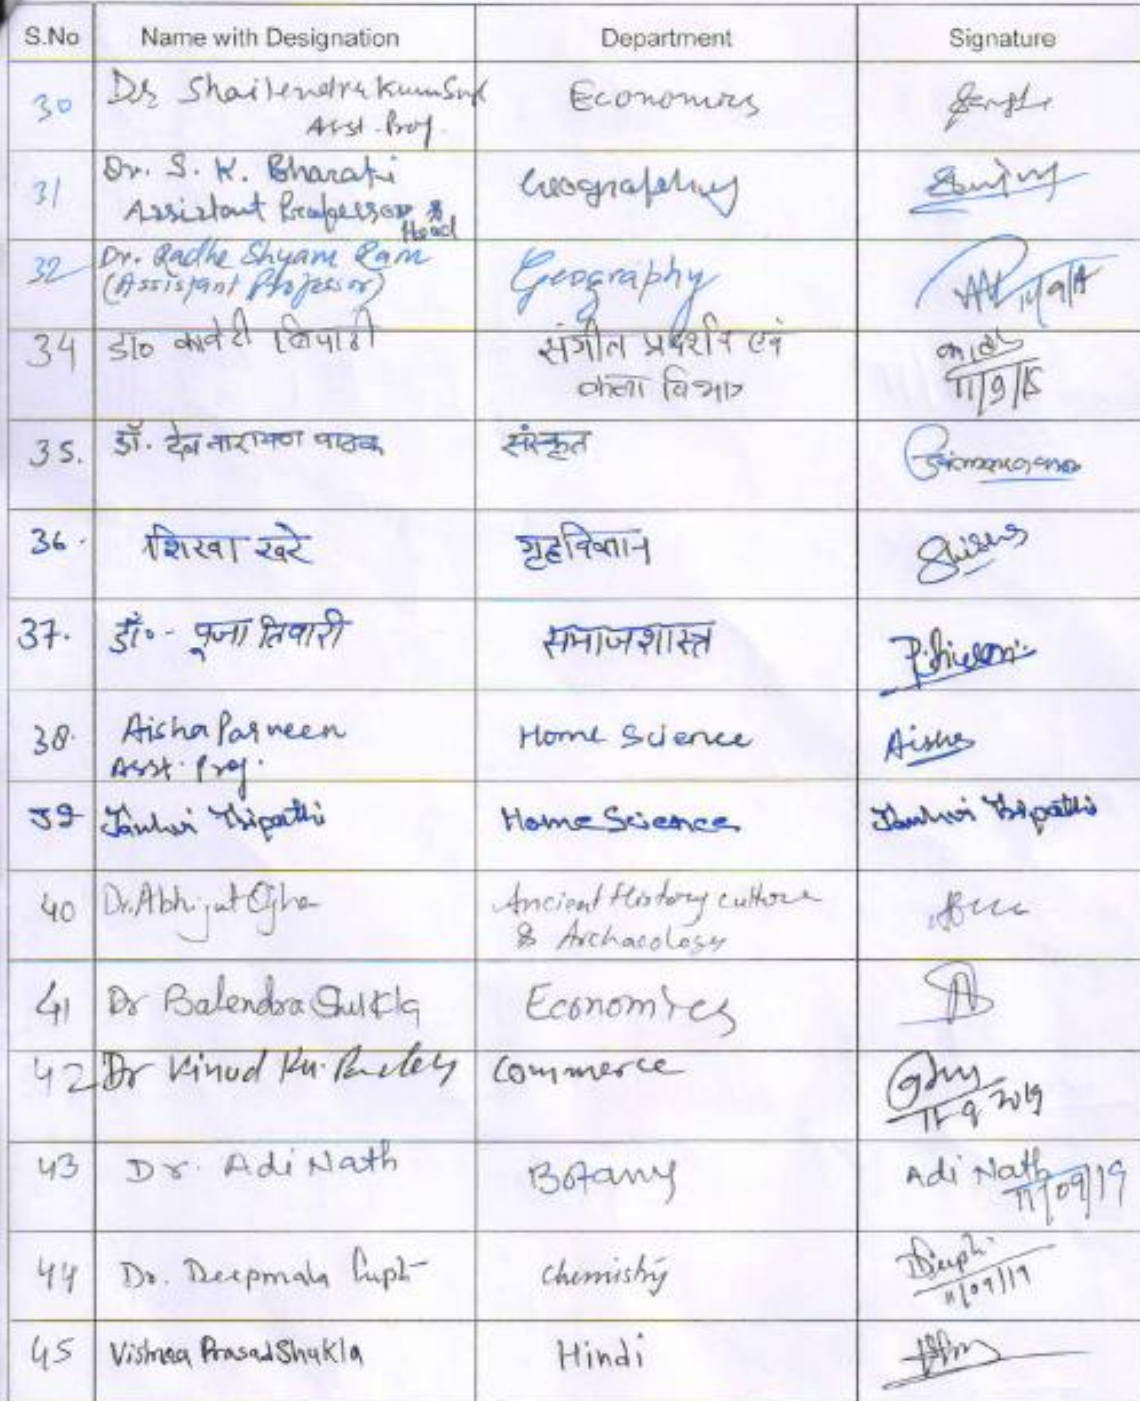 S.No Name with Designation Department Signature
30 Dr Shailendra Kumar Economics
Asst. Prof.
31 Dr. S. K. Bharati Geography
Assistant Professor &
Head
32 Dr. Radhe Shyam Ram Geography
(Assistant Professor) 11/9/19
34 डा० कावेरी त्रिपाठी संगीत प्रदर्शन एवं
कला विभाग 11/9/
35. डॉ. देव नारायण पाठक संस्कृत
36. शिखा खरे गृहविज्ञान
37. डॉ०- पूजा तिवारी समाजशास्त्र P. Tiwari
38. Aisha Parveen Home Science Aisha
Asst. Prof.
39 Janhvi Tripathi Home Science Janhvi Tripathi
40 Dr. Abhijat Ojha Ancient History culture
& Archaeology
41 Dr Balendra Shukla Economics
42 Dr Vinod Ku. Pandey Commerce
11-9-2019
43 Dr. Adi Nath Botany Adi Nath
11/09/19
44 Dr. Deepmala Gupta chemistry
11/09/19
45 Prasad Shukla Hindi